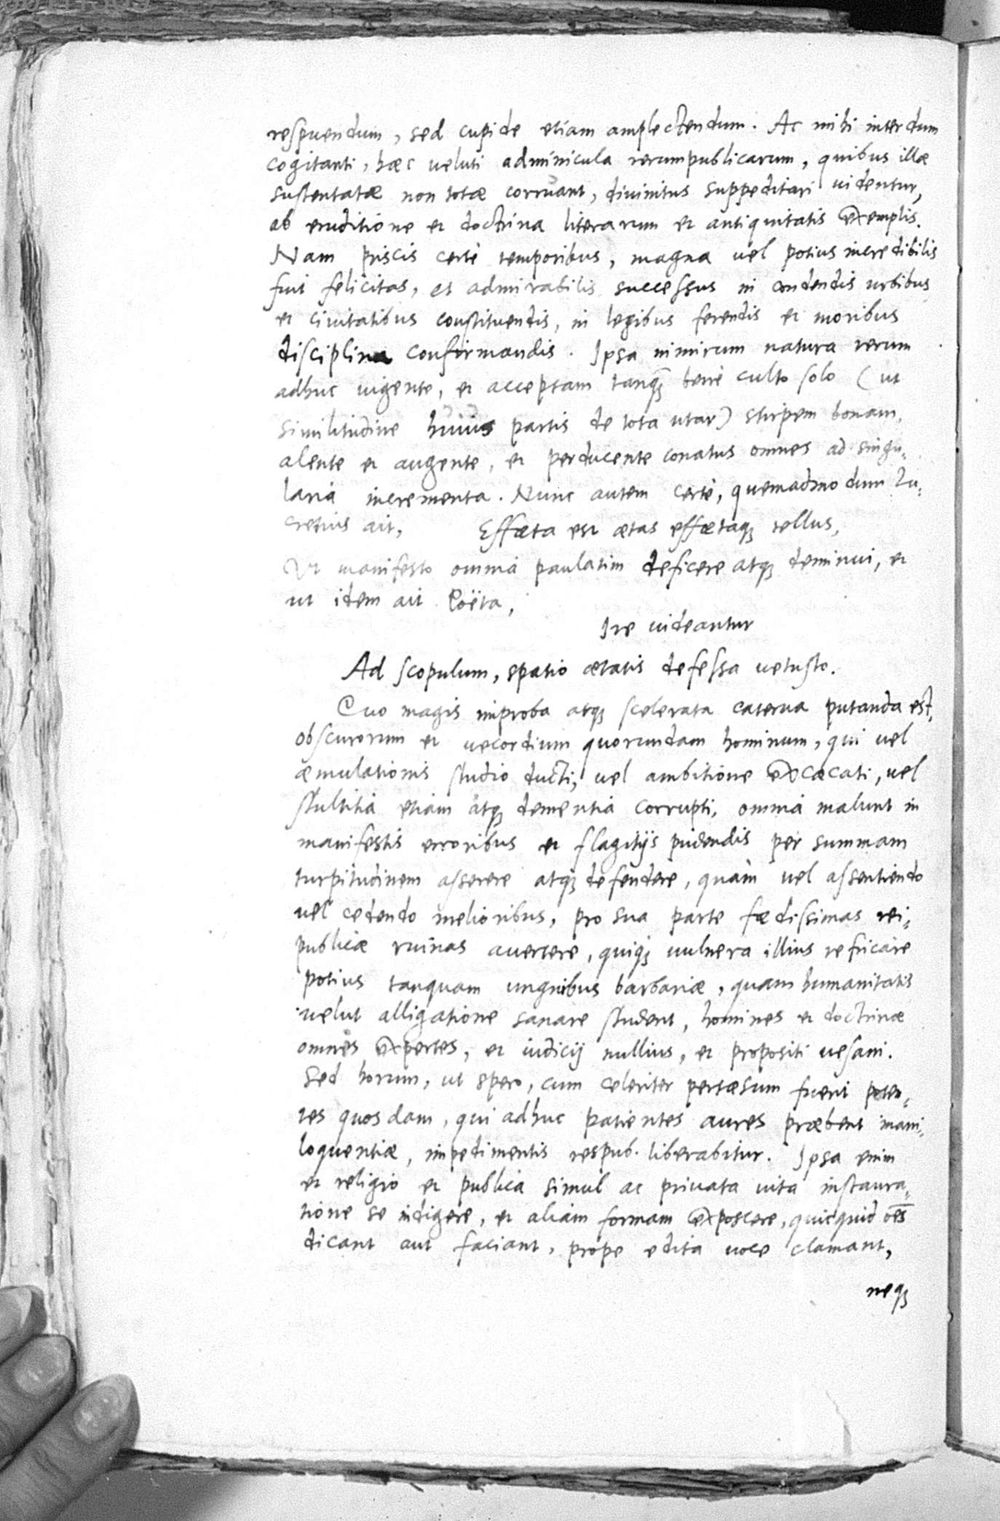 respuendum, sed cupide etiam amplectendum. Ac mihi interdum
cogitanti, hæc veluti adminicula rerumpublicarum, quibus illæ
sustentatæ non totæ corruant, divinitus suppeditari videntur,
ab eruditione et doctrina literarum et antiquitatis exemplis.
Nam priscis certè temporibus, magna vel potius incredibilis
fuit felicitas, et admirabilis successus in condendis urbibus
et civitatibus constituendis, in legibus ferendis et moribus
disciplina confirmandis. Ipsa nimirum natura rerum
adhuc vigente, et acceptam tanq̃ bene culto solo (ut
similitudine huius partis de tota utar) stirpem bonam,
alente et augente, et perducente conatus omnes ad singu-
laria incrementa. Nunc autem certè, quemadmodum Lu-
cretius ait, Effæta est ætas effætaq; tellus,
Ut manifesto omnia paulatim deficere atq; deminui, et
ut idem ait Poëta,
Ire videantur
Ad scopulum, spatio ætatis defessa vetusto.
Quo magis improba atq; scelerata caterva putanda est,
obscurorum et vecordium quorundam hominum, qui vel
æmulationis studio ducti, vel ambitione excæcati, vel
stultitia etiam atq; dementia corrupti, omnia malunt in
manifestis erroribus et flagitijs pudendis per summam
turpitudinem asserere atq; defendere, quàm vel assentiendo
vel cedendo melioribus, pro sua parte fædissimas rei-
publicæ ruinas avertere, quiq; vulnera illius refricare
potius tanquam unguibus barbariæ, quam humanitatis
velut alligatione sanare student, homines et doctrinæ
omnes expertes, et iudicij nullius, et propositi vesani.
Sed horum, ut spero, cum celeriter pertæsum fuerit poten-
tes quosdam, qui adhuc patientes aures præbent inani-
loquentiæ, impedimentis respub. liberabitur. Ipsa enim
et religio et publica simul ac privata vita instaura-
tione se indigere, et aliam formam exposcere, quicquid oēs
dicant aut faciant, prope edita voce clamant,
neq;